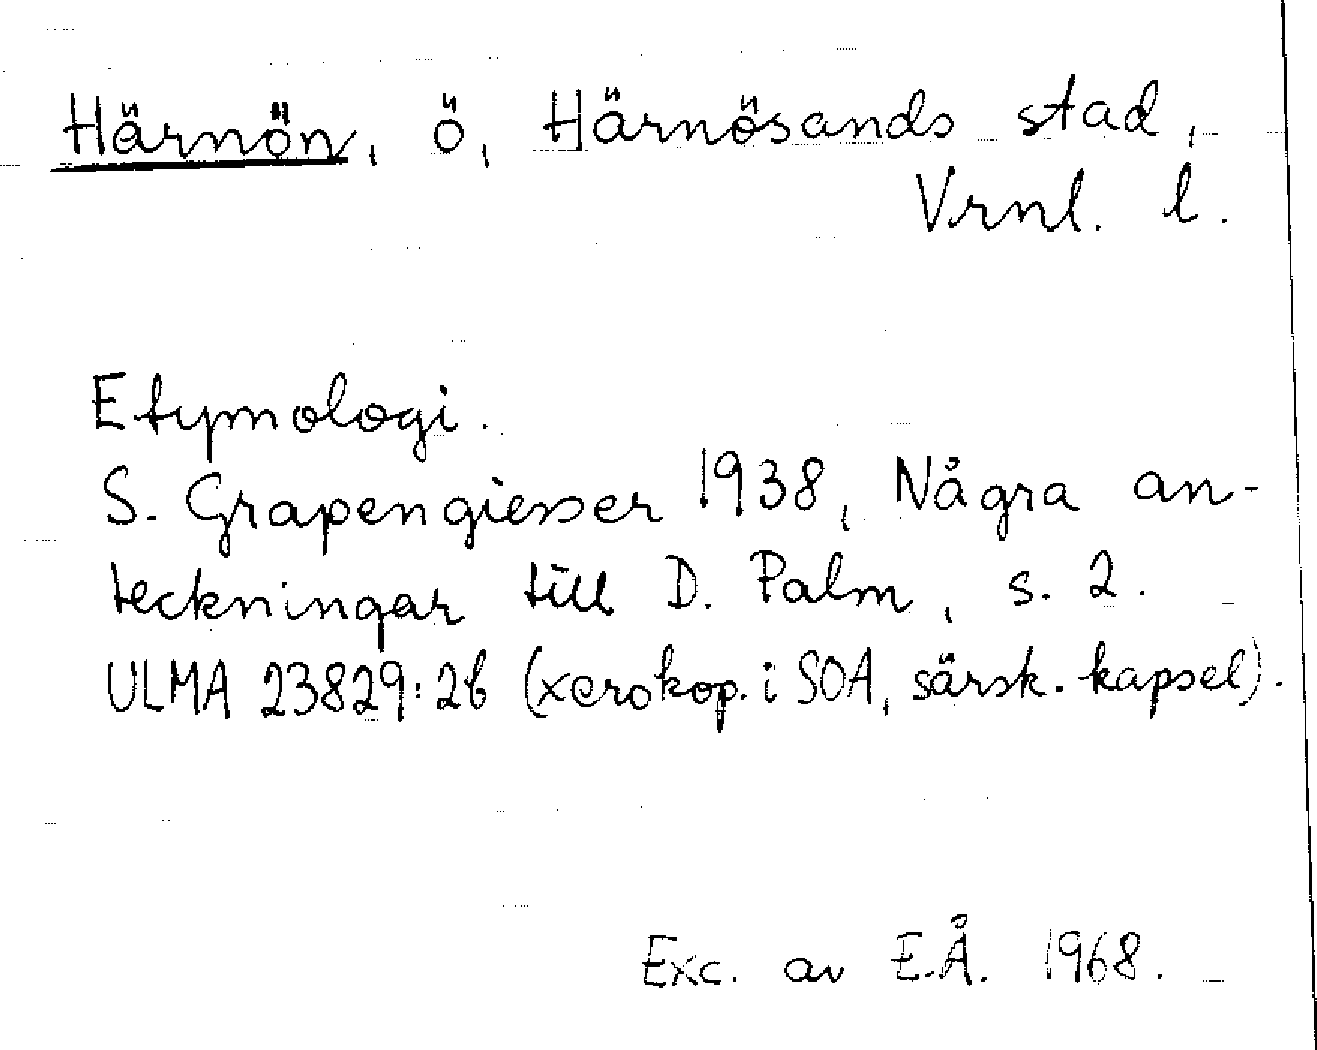 Härnön, ö, Härnösands stad,
Vrnl. l.
Etymologi.
S. Grapengiesser 1938, Några an-
teckningar till D. Palm, s. 2.
ULMA 23829:2b (xerokop. i SOA, särsk. kapsel).
Exc. av E.Å. 1968.